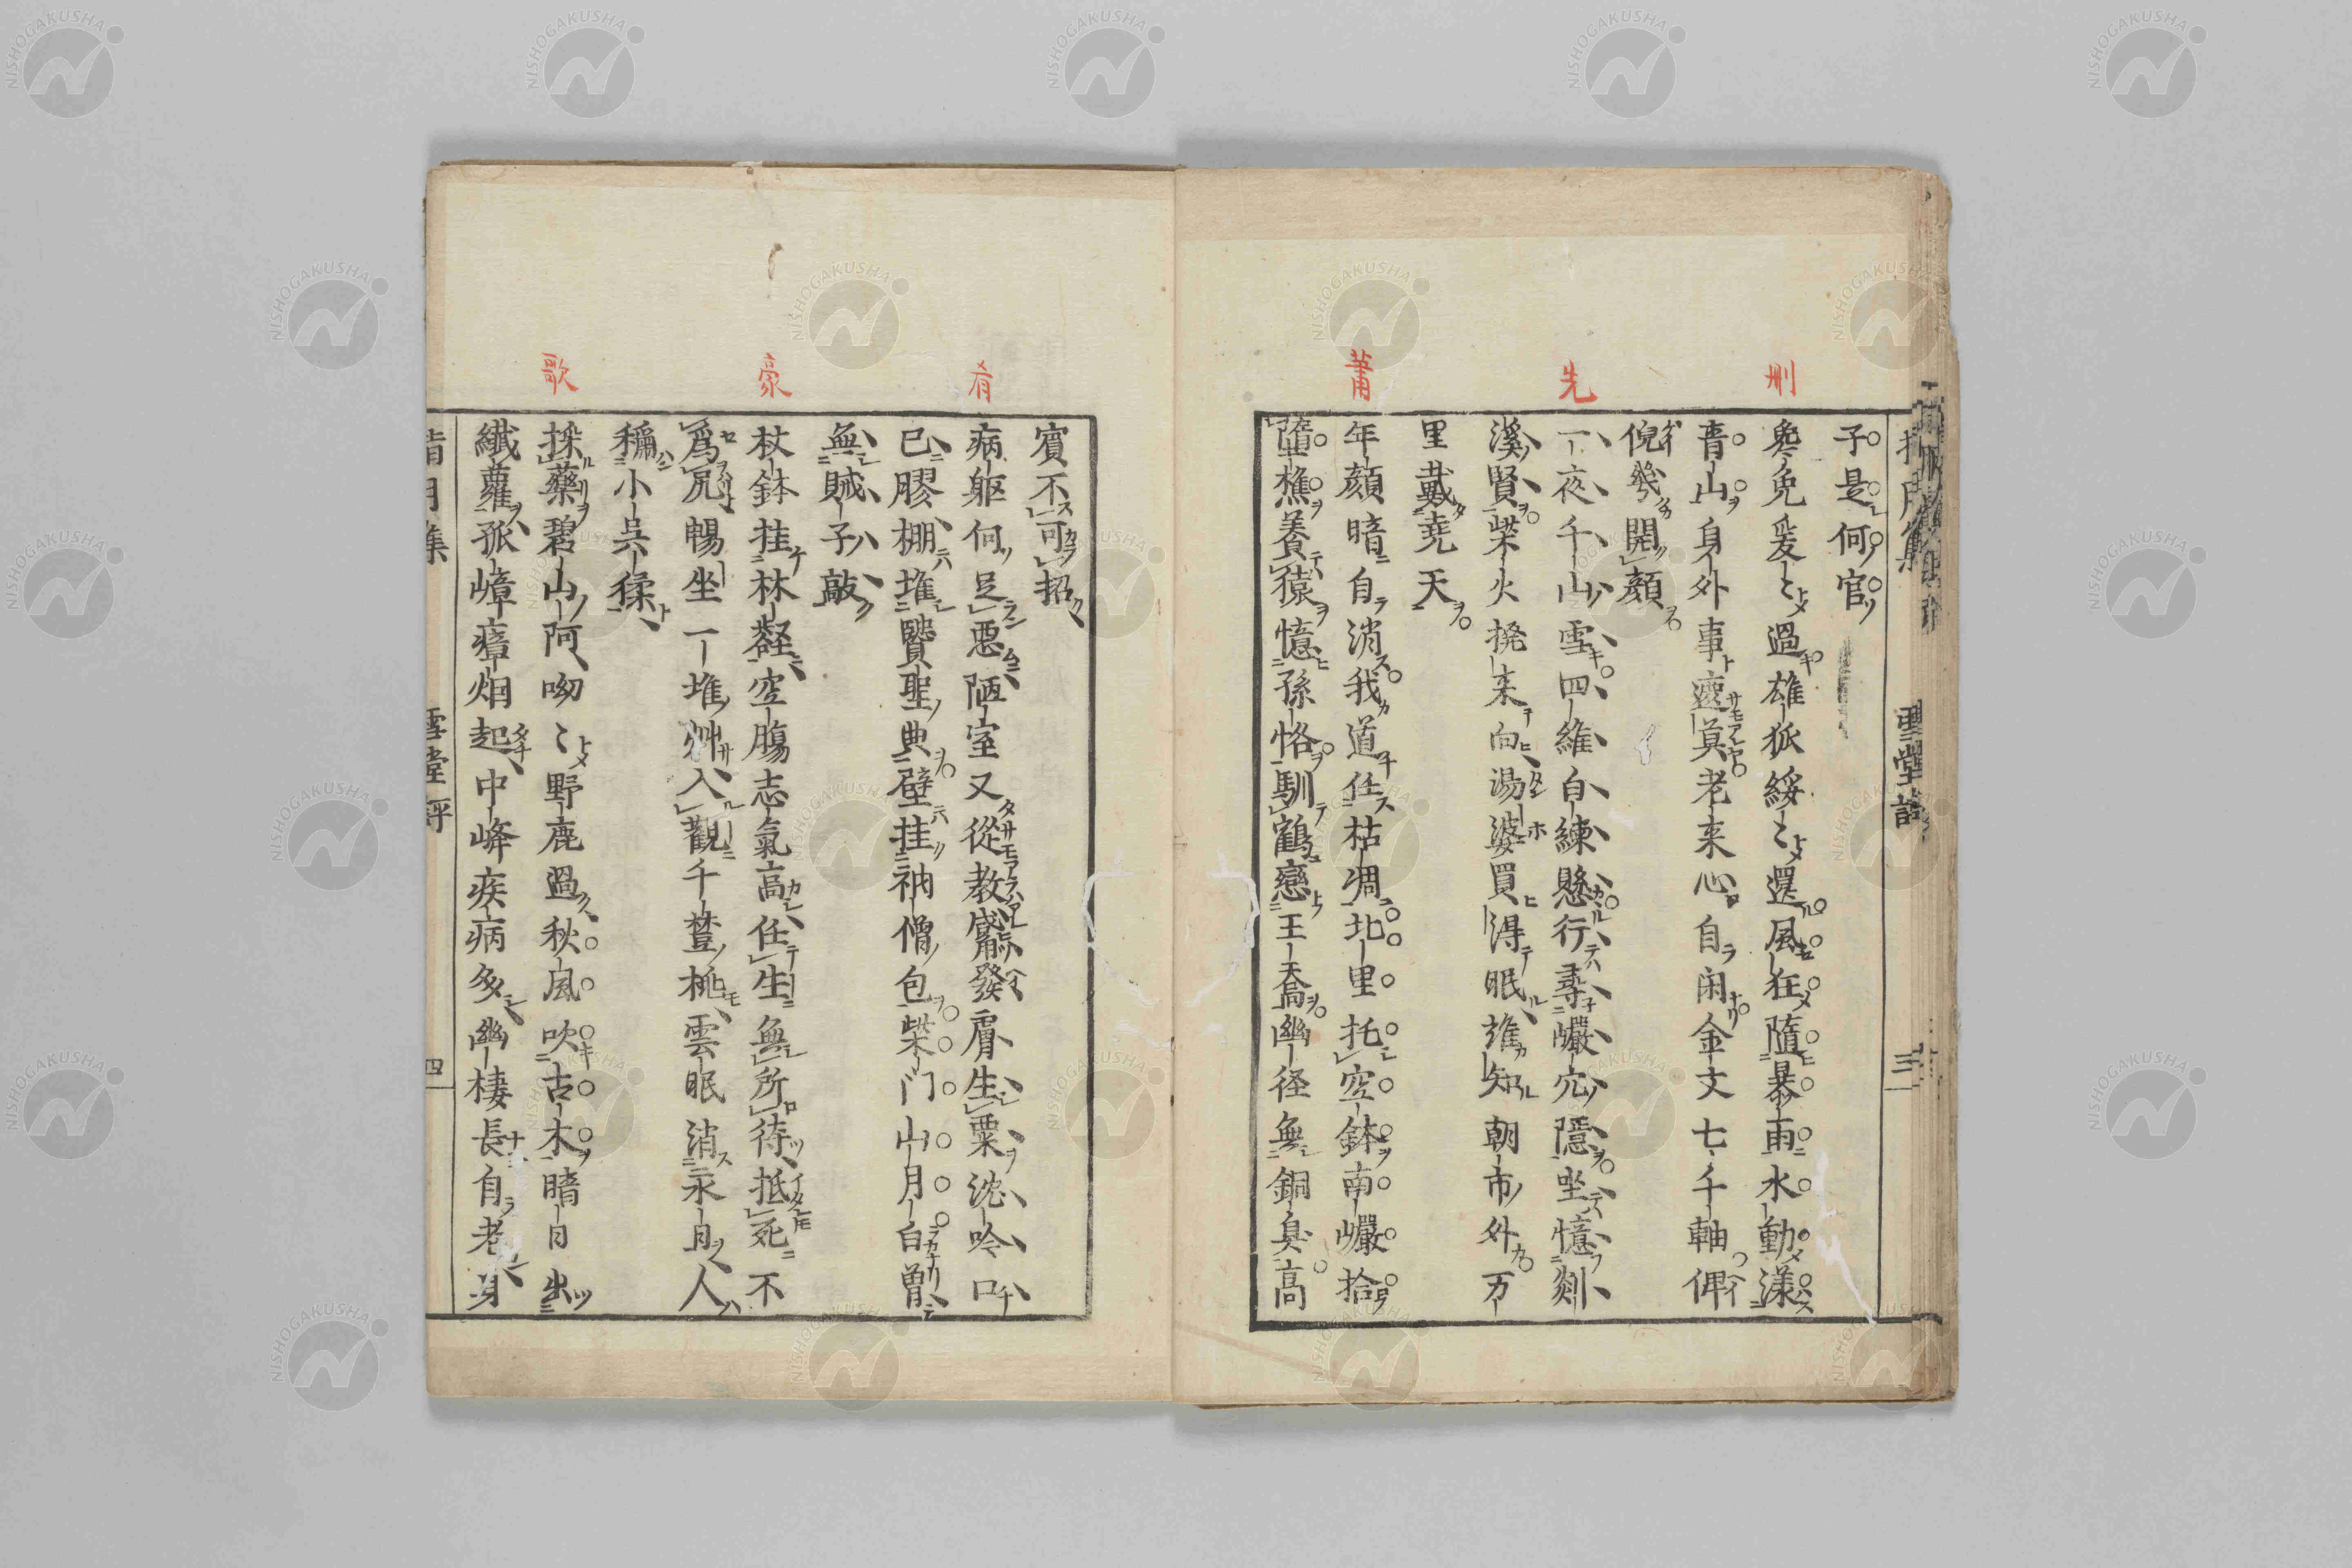 刪
先
蕭
子是何官
毚兔爰〻過雄狐綏〻還風狂隨暴雨水動漾
青山身外事遮莫老来心自閑金文七千軸俾
倪幾開顏
一夜千山雪四維白練懸行尋巗穴隱坐憶剡
溪賢柴火撓来向湯婆買得眠誰知朝市外万
里戴堯天
年顏暗自消我道任枯凋北里托空鉢南巗拾
墮樵養猿憶孫恪馴鶴戀王喬幽径無銅臭高
三
肴
豪
歌
賓不可招
病軀何足惡陋室又從教觱發膚生粟沈吟口
已膠棚堆賢聖典壁挂衲僧包柴門山月白曽
無賊子敲
杖鉢挂林壑空腸志氣高任生無所待抵死不
爲尻暢坐一堆艸入觀千〻桃雲眠消永日人
稱小吳猱
採藥碧山阿呦〻野鹿過秋風吹古木暗日出
纖蘿孤嶂瘴烟起中峰疾病多幽棲長自老身
四
NISHOGAKUSHA